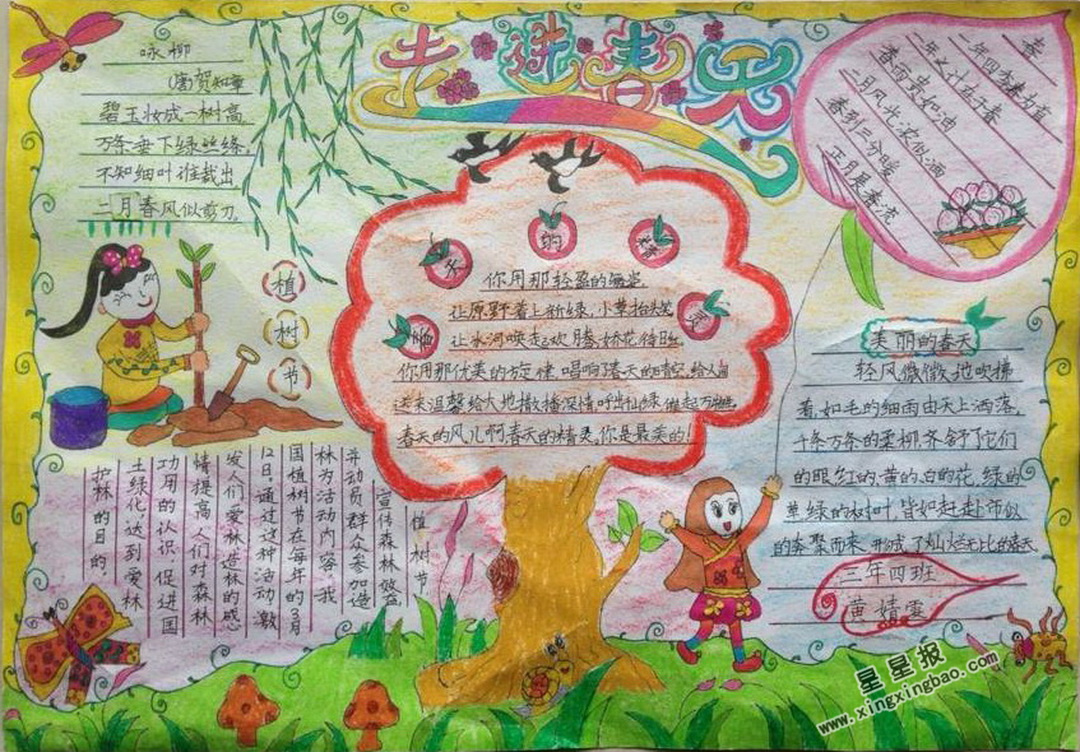 走进春天
咏柳
(唐)贺知章
碧玉妆成一树高,
万条垂下绿丝绦,
不知细叶谁裁出,
二月春风似剪刀.
春
一年四季春为首
一年之计在于春
春雨贵如油
二月风光浓似酒
春到三分暖
正月是春
春天的精灵
你用那轻盈的舞姿,
让原野着上新绿,小草抬头笑
让冰河唤起欢腾,娇花待
你用那优美的旋律,唱响了春天的晴空,给人间
送来温馨给大地撒播深情呼出
春天的风儿啊春天的精灵,你是最美的!
植树节
植树节
宣传森林效益
并动员群众参加造
林为活动内容,我
国植树节在每年的3月
12日,通过这种活动,激
发人们爱林造林的感
情提高人们对森林
功用的认识,促进国
土绿化达到爱林
护林的目的.
美丽的春天
轻风微微地吹拂
着,如毛的细雨由天上洒落,
千条万条的柔柳,齐舒了它们
的眼,红的、黄的、白的花,绿的
草绿的树叶,皆如赶赴市似
的奔聚而来,形成了灿烂无比的春天.
三年四班
黄婧雯
星星报
www.xingxingbao.com